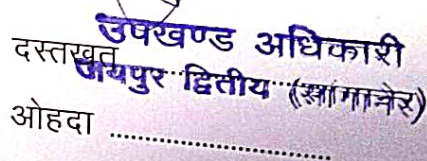 उपखण्ड अधिकारी
दस्तखत
जयपुर द्वितीय (सांगानेर)
ओहदा ..............................